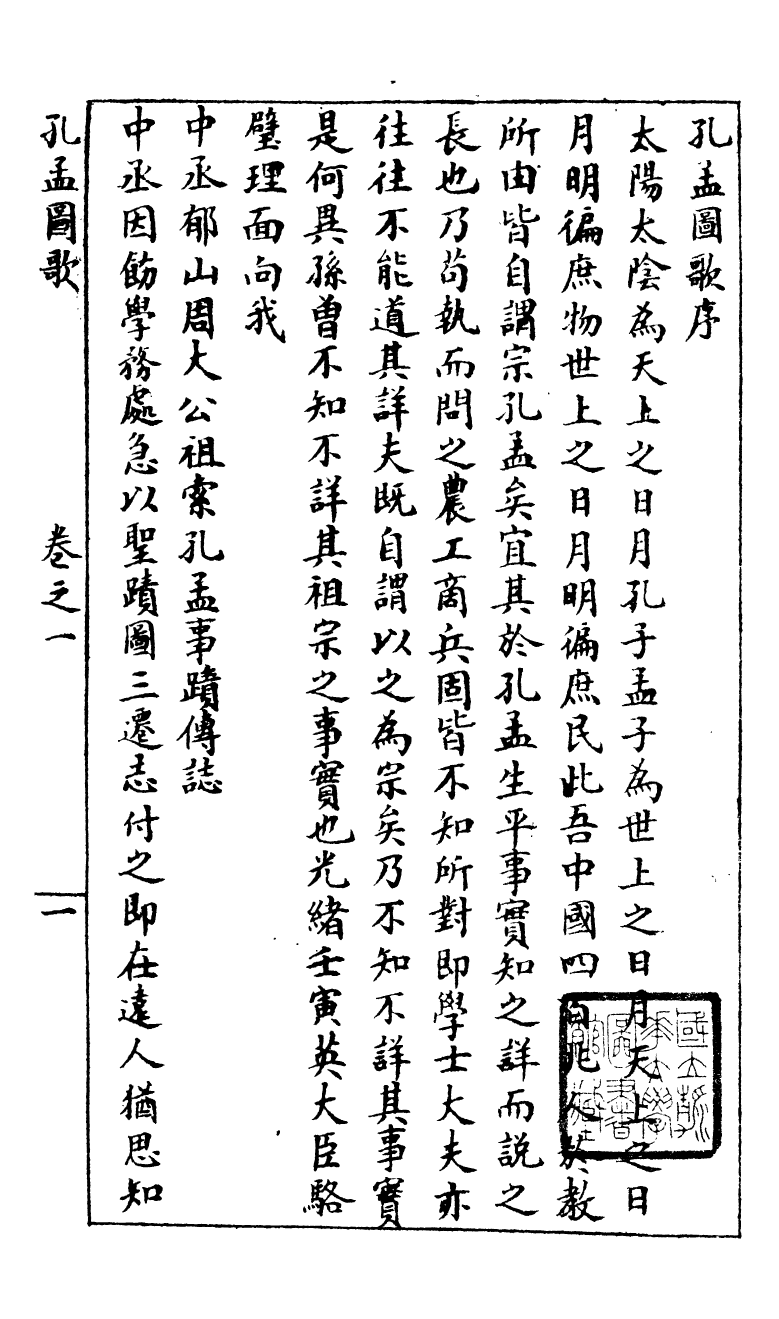 孔孟圖歌序
太陽太陰為天上之日月孔子孟子為世上之日月天上之日
月明徧庶物世上之日月明徧庶民此吾中國四百兆人於教
所由皆自謂宗孔孟矣宜其於孔孟生平事實知之詳而説之
長也乃苟執而問之農工商兵固皆不知所對即學士大夫亦
往往不能道其詳夫既自謂以之為宗矣乃不知不詳其事實
是何異孫曾不知不詳其祖宗之事實也光緒壬寅英大臣駱
璧理面向我
中丞郁山周大公祖索孔孟事蹟傳誌
中丞因飭學務處急以聖蹟圖三遷志付之即在遠人猶思知
孔孟圖歌 卷之一 一
國立
大學
圖書